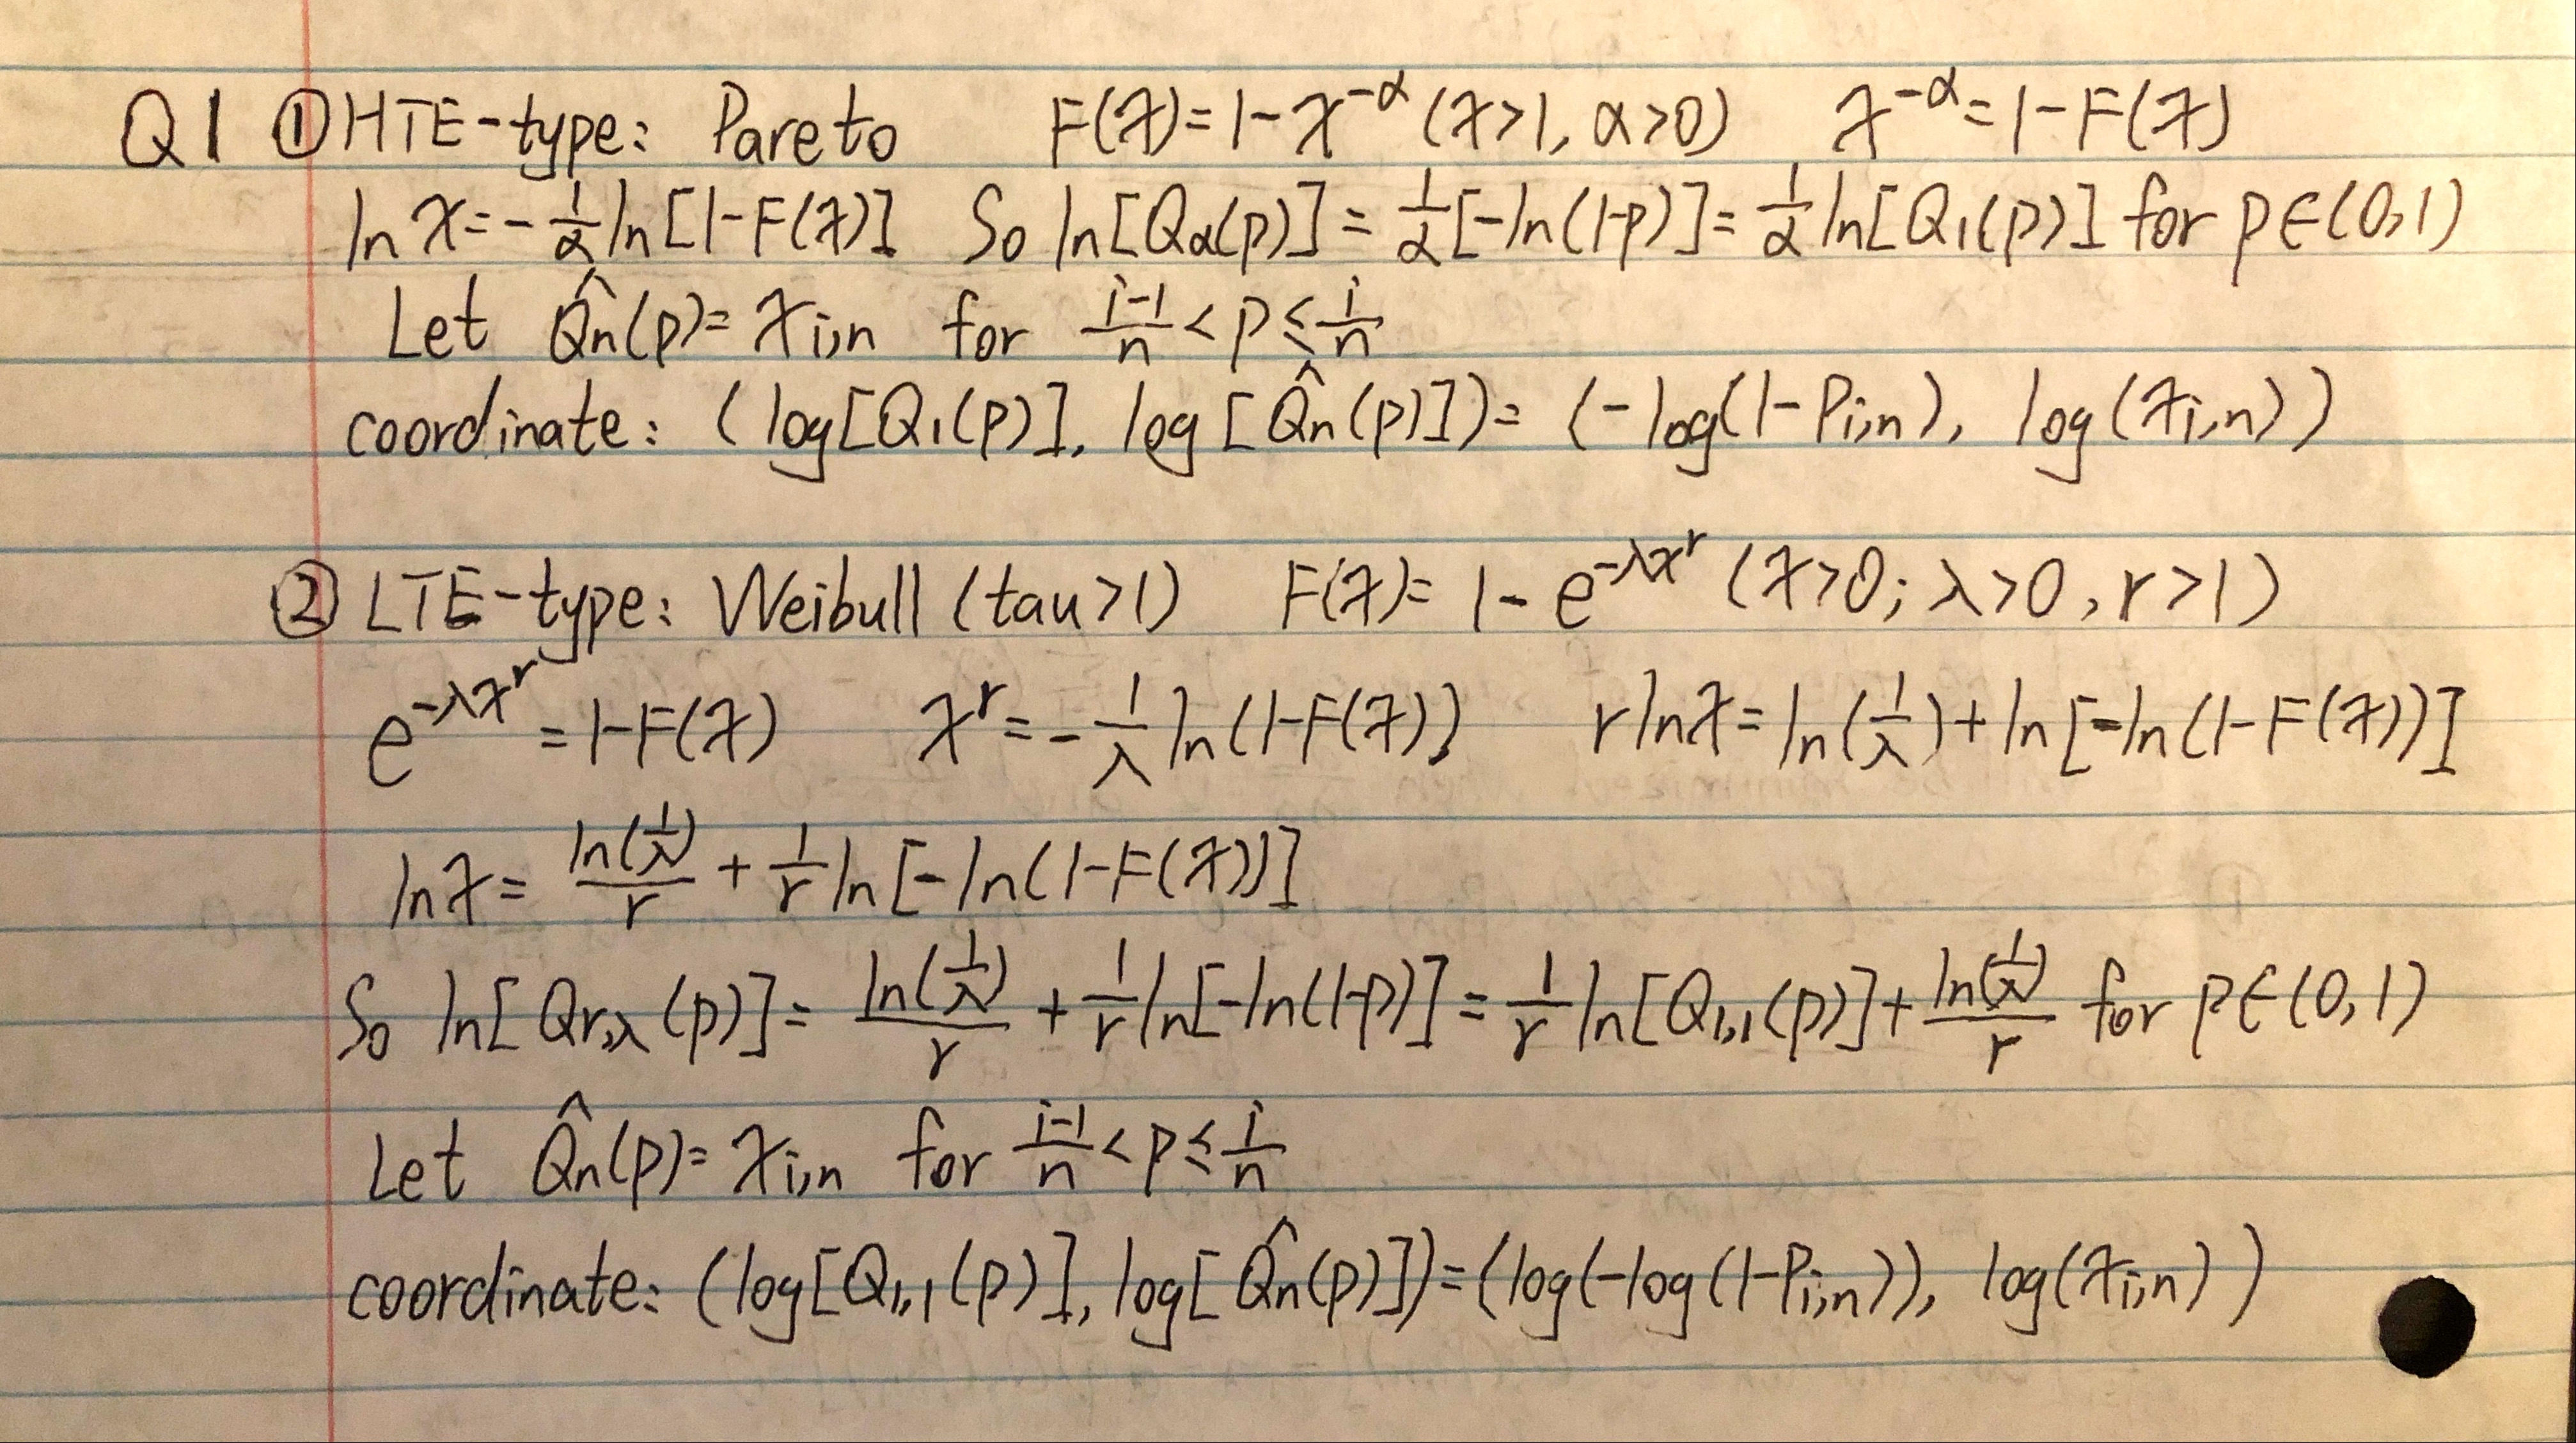 Q1 ① HTE-type: Pareto F(x)=1-x^{-α} (x>1, α>0) x^{-α}=1-F(x)
ln x=-\frac{1}{α}ln[1-F(x)] So ln[Qα(p)]=\frac{1}{α}[-ln(1-p)]=\frac{1}{α}ln[Q₁(p)] for p∈(0,1)
Let \hat{Q}n(p)=x_{i,n} for \frac{i-1}{n}<p≤\frac{i}{n}
coordinate: (log[Q₁(p)], log[\hat{Q}n(p)])=(-log(1-P_{i,n}), log(x_{i,n}))
② LTE-type: Weibull (tau>1) F(x)=1-e^{-λx^r} (x>0; λ>0, r>1)
e^{-λx^r}=1-F(x) x^r=-\frac{1}{λ}ln(1-F(x)) r ln x=ln(\frac{1}{λ})+ln[-ln(1-F(x))]
ln x=\frac{ln(\frac{1}{λ})}{r}+\frac{1}{r}ln[-ln(1-F(x))]
So ln[Q_{r,λ}(p)]=\frac{ln(\frac{1}{λ})}{r}+\frac{1}{r}ln[-ln(1-p)]=\frac{1}{r}ln[Q_{1,1}(p)]+\frac{ln(\frac{1}{λ})}{r} for p∈(0,1)
Let \hat{Q}n(p)=x_{i,n} for \frac{i-1}{n}<p≤\frac{i}{n}
coordinate: (log[Q_{1,1}(p)], log[\hat{Q}n(p)])=(log(-log(1-P_{i,n})), log(x_{i,n}))